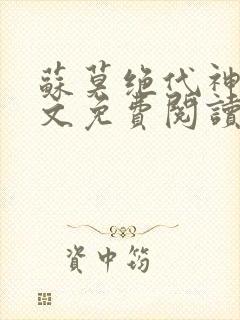 蘇莫绝代神
文免費閱讀
資中筠